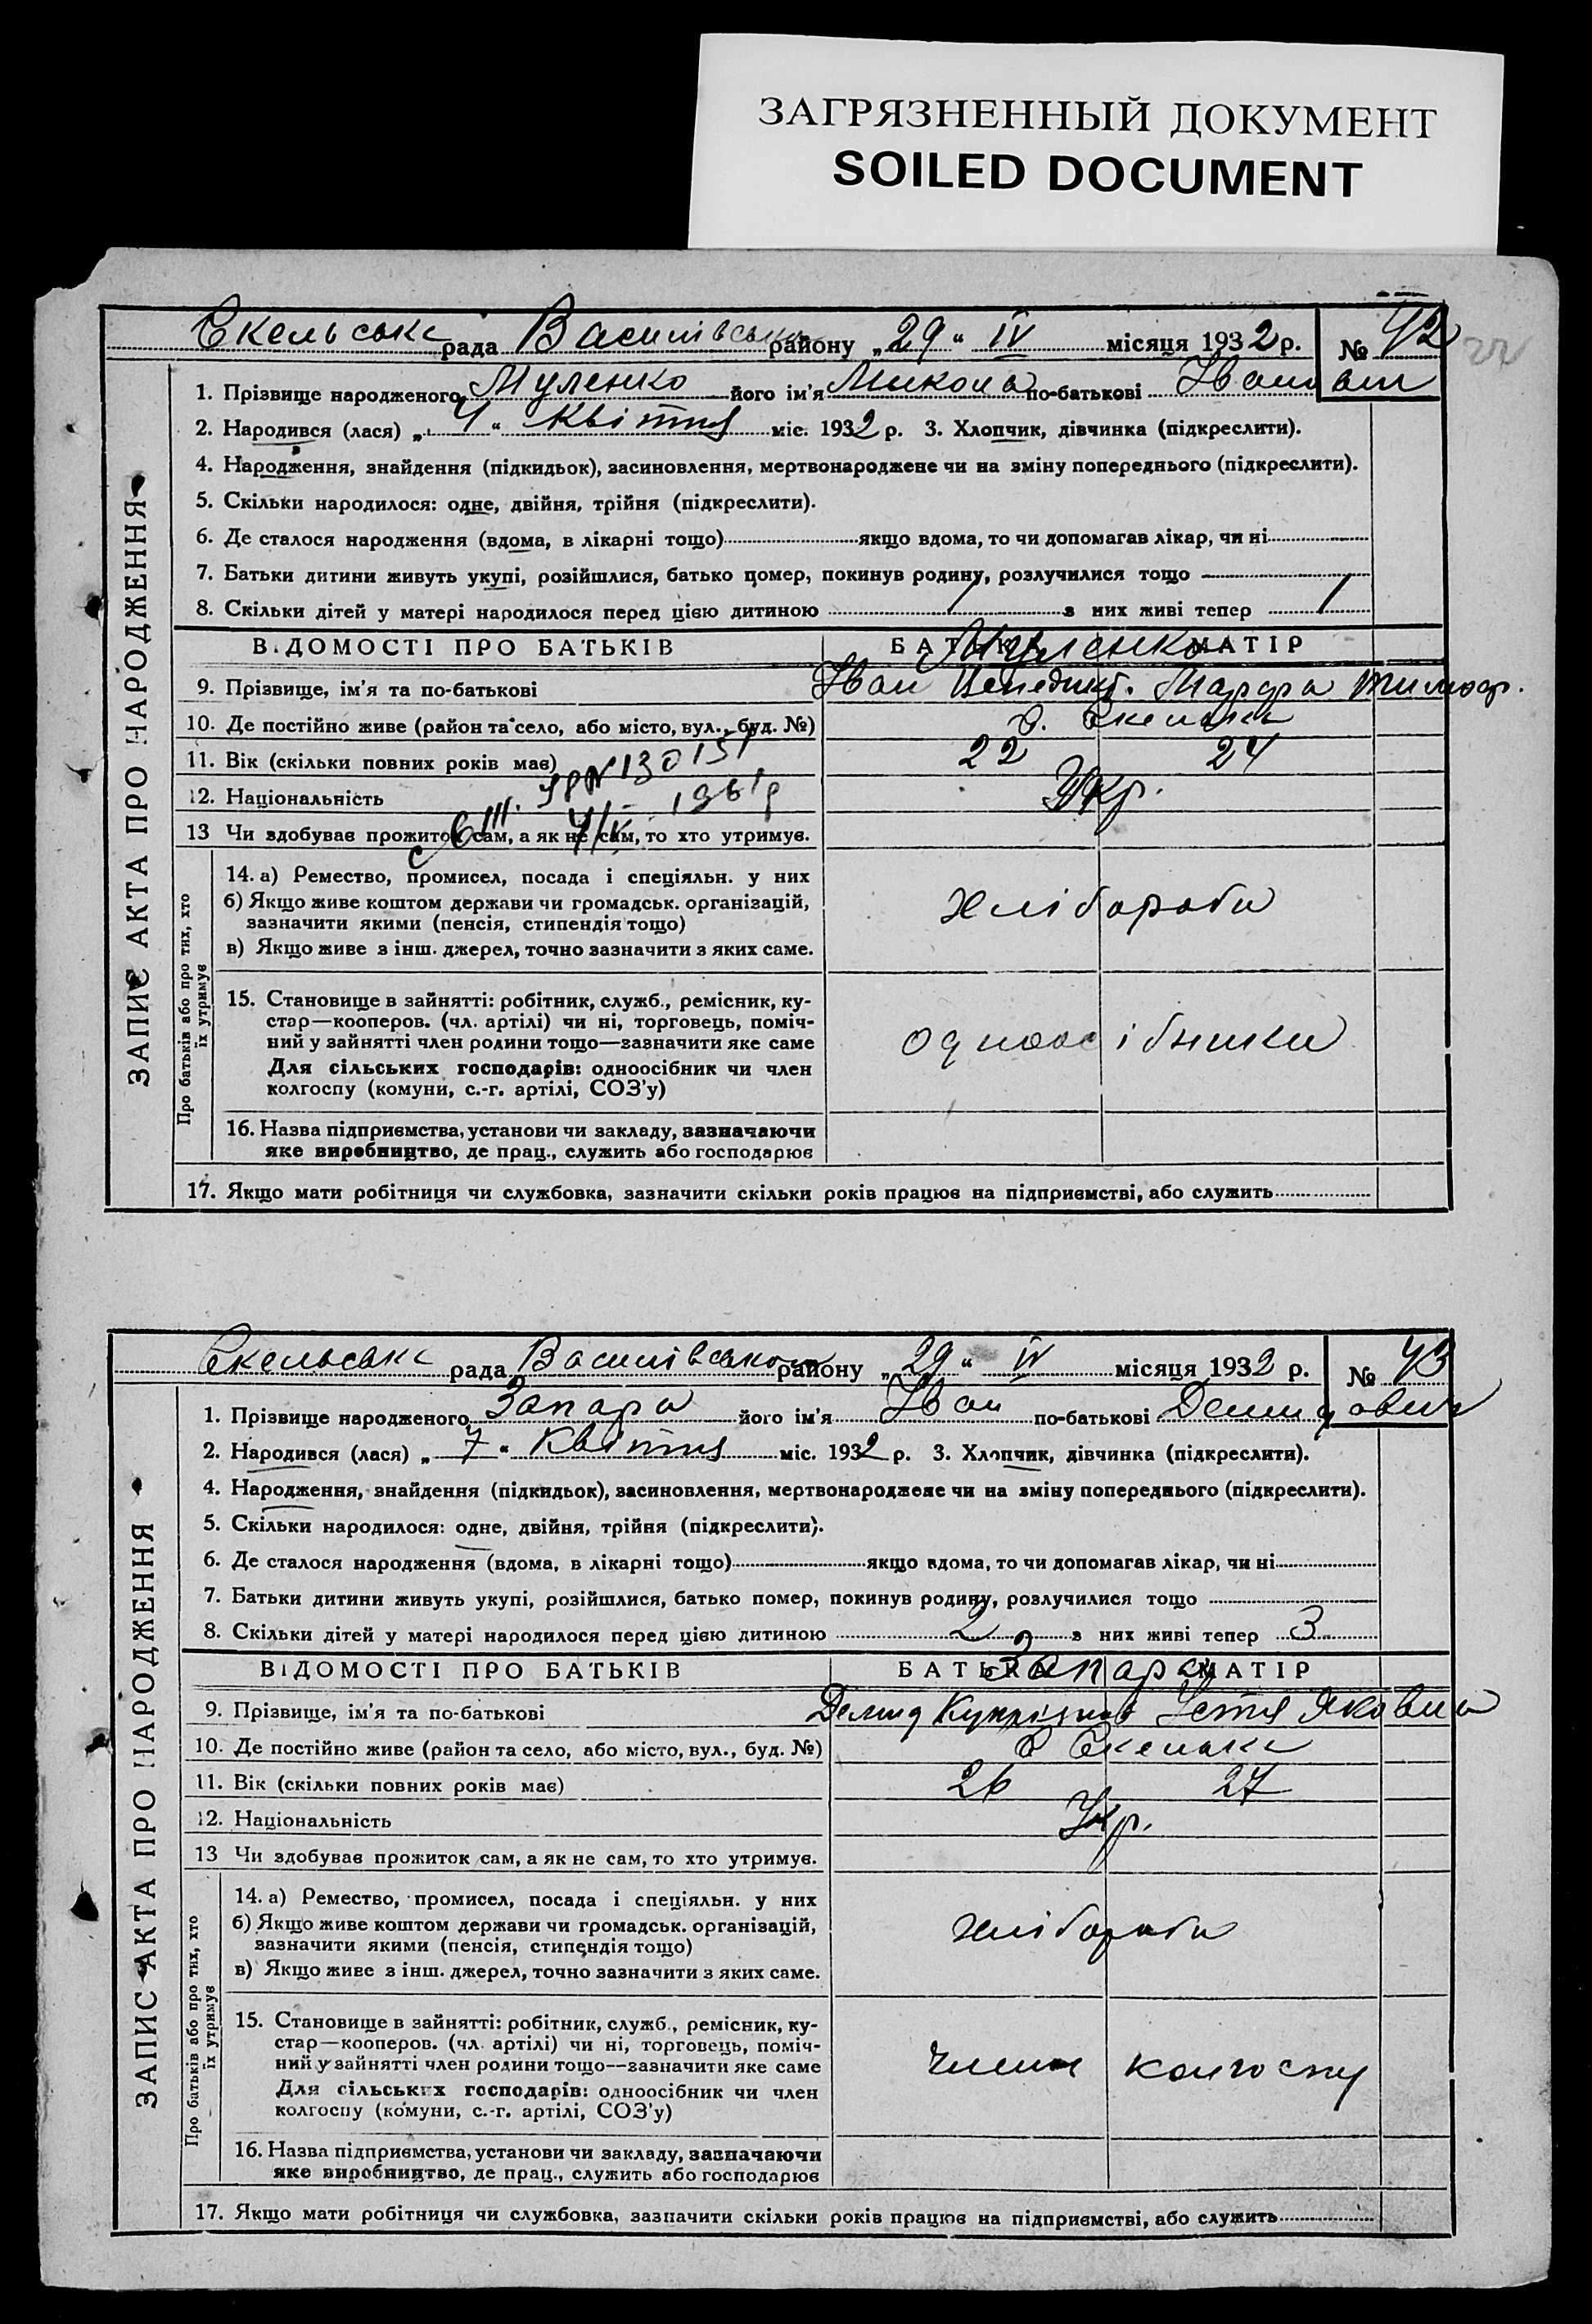 ЗАГРЯЗНЕННЫЙ ДОКУМЕНТ
SOILED DOCUMENT
Скельська рада Василівського району „29“ IV місяця 1932 р. № 42
ЗАПИС АКТА ПРО НАРОДЖЕННЯ
1. Прізвище народженого Муленко його ім'я Микола по-батькові Іванович
2. Народився (лася) „4“ Квітня міс. 1932 р. 3. Хлопчик, дівчинка (підкреслити).
4. Народження, знайдення (підкидьок), засиновлення, мертвонароджене чи на зміну попереднього (підкреслити).
5. Скільки народилося: одне, двійня, трійня (підкреслити).
6. Де сталося народження (вдома, в лікарні тощо) якщо вдома, то чи допомагав лікар, чи ні
7. Батьки дитини живуть укупі, розійшлися, батько помер, покинув родину, розлучилися тощо
8. Скільки дітей у матері народилося перед цією дитиною 1 з них живі тепер 1
ВІДОМОСТІ ПРО БАТЬКІВ БАТЬКА МАТІР
Муленко
9. Прізвище, ім'я та по-батькові Іван Венедикт. Марфа Тимоф.
10. Де постійно живе (район та село, або місто, вул., буд. №) с. Скельки
11. Вік (скільки повних років має) 22 24
№130151
12. Національність Укр.
13 Чи здобував прожиток сам, а як не сам, то хто утримув.
Про батьків або про тих, хто їх утримує
14. а) Ремество, промисел, посада і спеціяльн. у них
б) Якщо живе коштом держави чи громадськ. організацій, хлібороби
зазначити якими (пенсія, стипендія тощо)
в) Якщо живе з інш. джерел, точно зазначити з яких саме.
15. Становище в зайнятті: робітник, служб., ремісник, ку-
стар—кооперов. (чл. артілі) чи ні, торговець, поміч-
ний у зайнятті член родини тощо—зазначити яке саме одноосібники
Для сільських господарів: одноосібник чи член
колгоспу (комуни, с.-г. артілі, СОЗ'у)
16. Назва підприємства, установи чи закладу, зазначаючи
яке виробництво, де прац., служить або господарює
17. Якщо мати робітниця чи службовка, зазначити скільки років працює на підприємстві, або служить
Скельська рада Василівського району „29“ IV місяця 1932 р. № 43
ЗАПИС АКТА ПРО НАРОДЖЕННЯ
1. Прізвище народженого Запара його ім'я Іван по-батькові Демидович
2. Народився (лася) „7“ Квітня міс. 1932 р. 3. Хлопчик, дівчинка (підкреслити).
4. Народження, знайдення (підкидьок), засиновлення, мертвонароджене чи на зміну попереднього (підкреслити).
5. Скільки народилося: одне, двійня, трійня (підкреслити).
6. Де сталося народження (вдома, в лікарні тощо) якщо вдома, то чи допомагав лікар, чи ні
7. Батьки дитини живуть укупі, розійшлися, батько помер, покинув родину, розлучилися тощо
8. Скільки дітей у матері народилося перед цією дитиною 2 з них живі тепер 3
ВІДОМОСТІ ПРО БАТЬКІВ БАТЬКА МАТІР
Запара
9. Прізвище, ім'я та по-батькові Демид Устя Яковна
10. Де постійно живе (район та село, або місто, вул., буд. №) с Скельки
11. Вік (скільки повних років має) 26 27
12. Національність Укр.
13 Чи здобував прожиток сам, а як не сам, то хто утримув.
Про батьків або про тих, хто їх утримує
14. а) Ремество, промисел, посада і спеціяльн. у них
б) Якщо живе коштом держави чи громадськ. організацій, хлібороби
зазначити якими (пенсія, стипендія тощо)
в) Якщо живе з інш. джерел, точно зазначити з яких саме.
15. Становище в зайнятті: робітник, служб., ремісник, ку-
стар—кооперов. (чл. артілі) чи ні, торговець, поміч-
ний у зайнятті член родини тощо—зазначити яке саме члени колгоспу
Для сільських господарів: одноосібник чи член
колгоспу (комуни, с.-г. артілі, СОЗ'у)
16. Назва підприємства, установи чи закладу, зазначаючи
яке виробництво, де прац., служить або господарює
17. Якщо мати робітниця чи службовка, зазначити скільки років працює на підприємстві, або служить